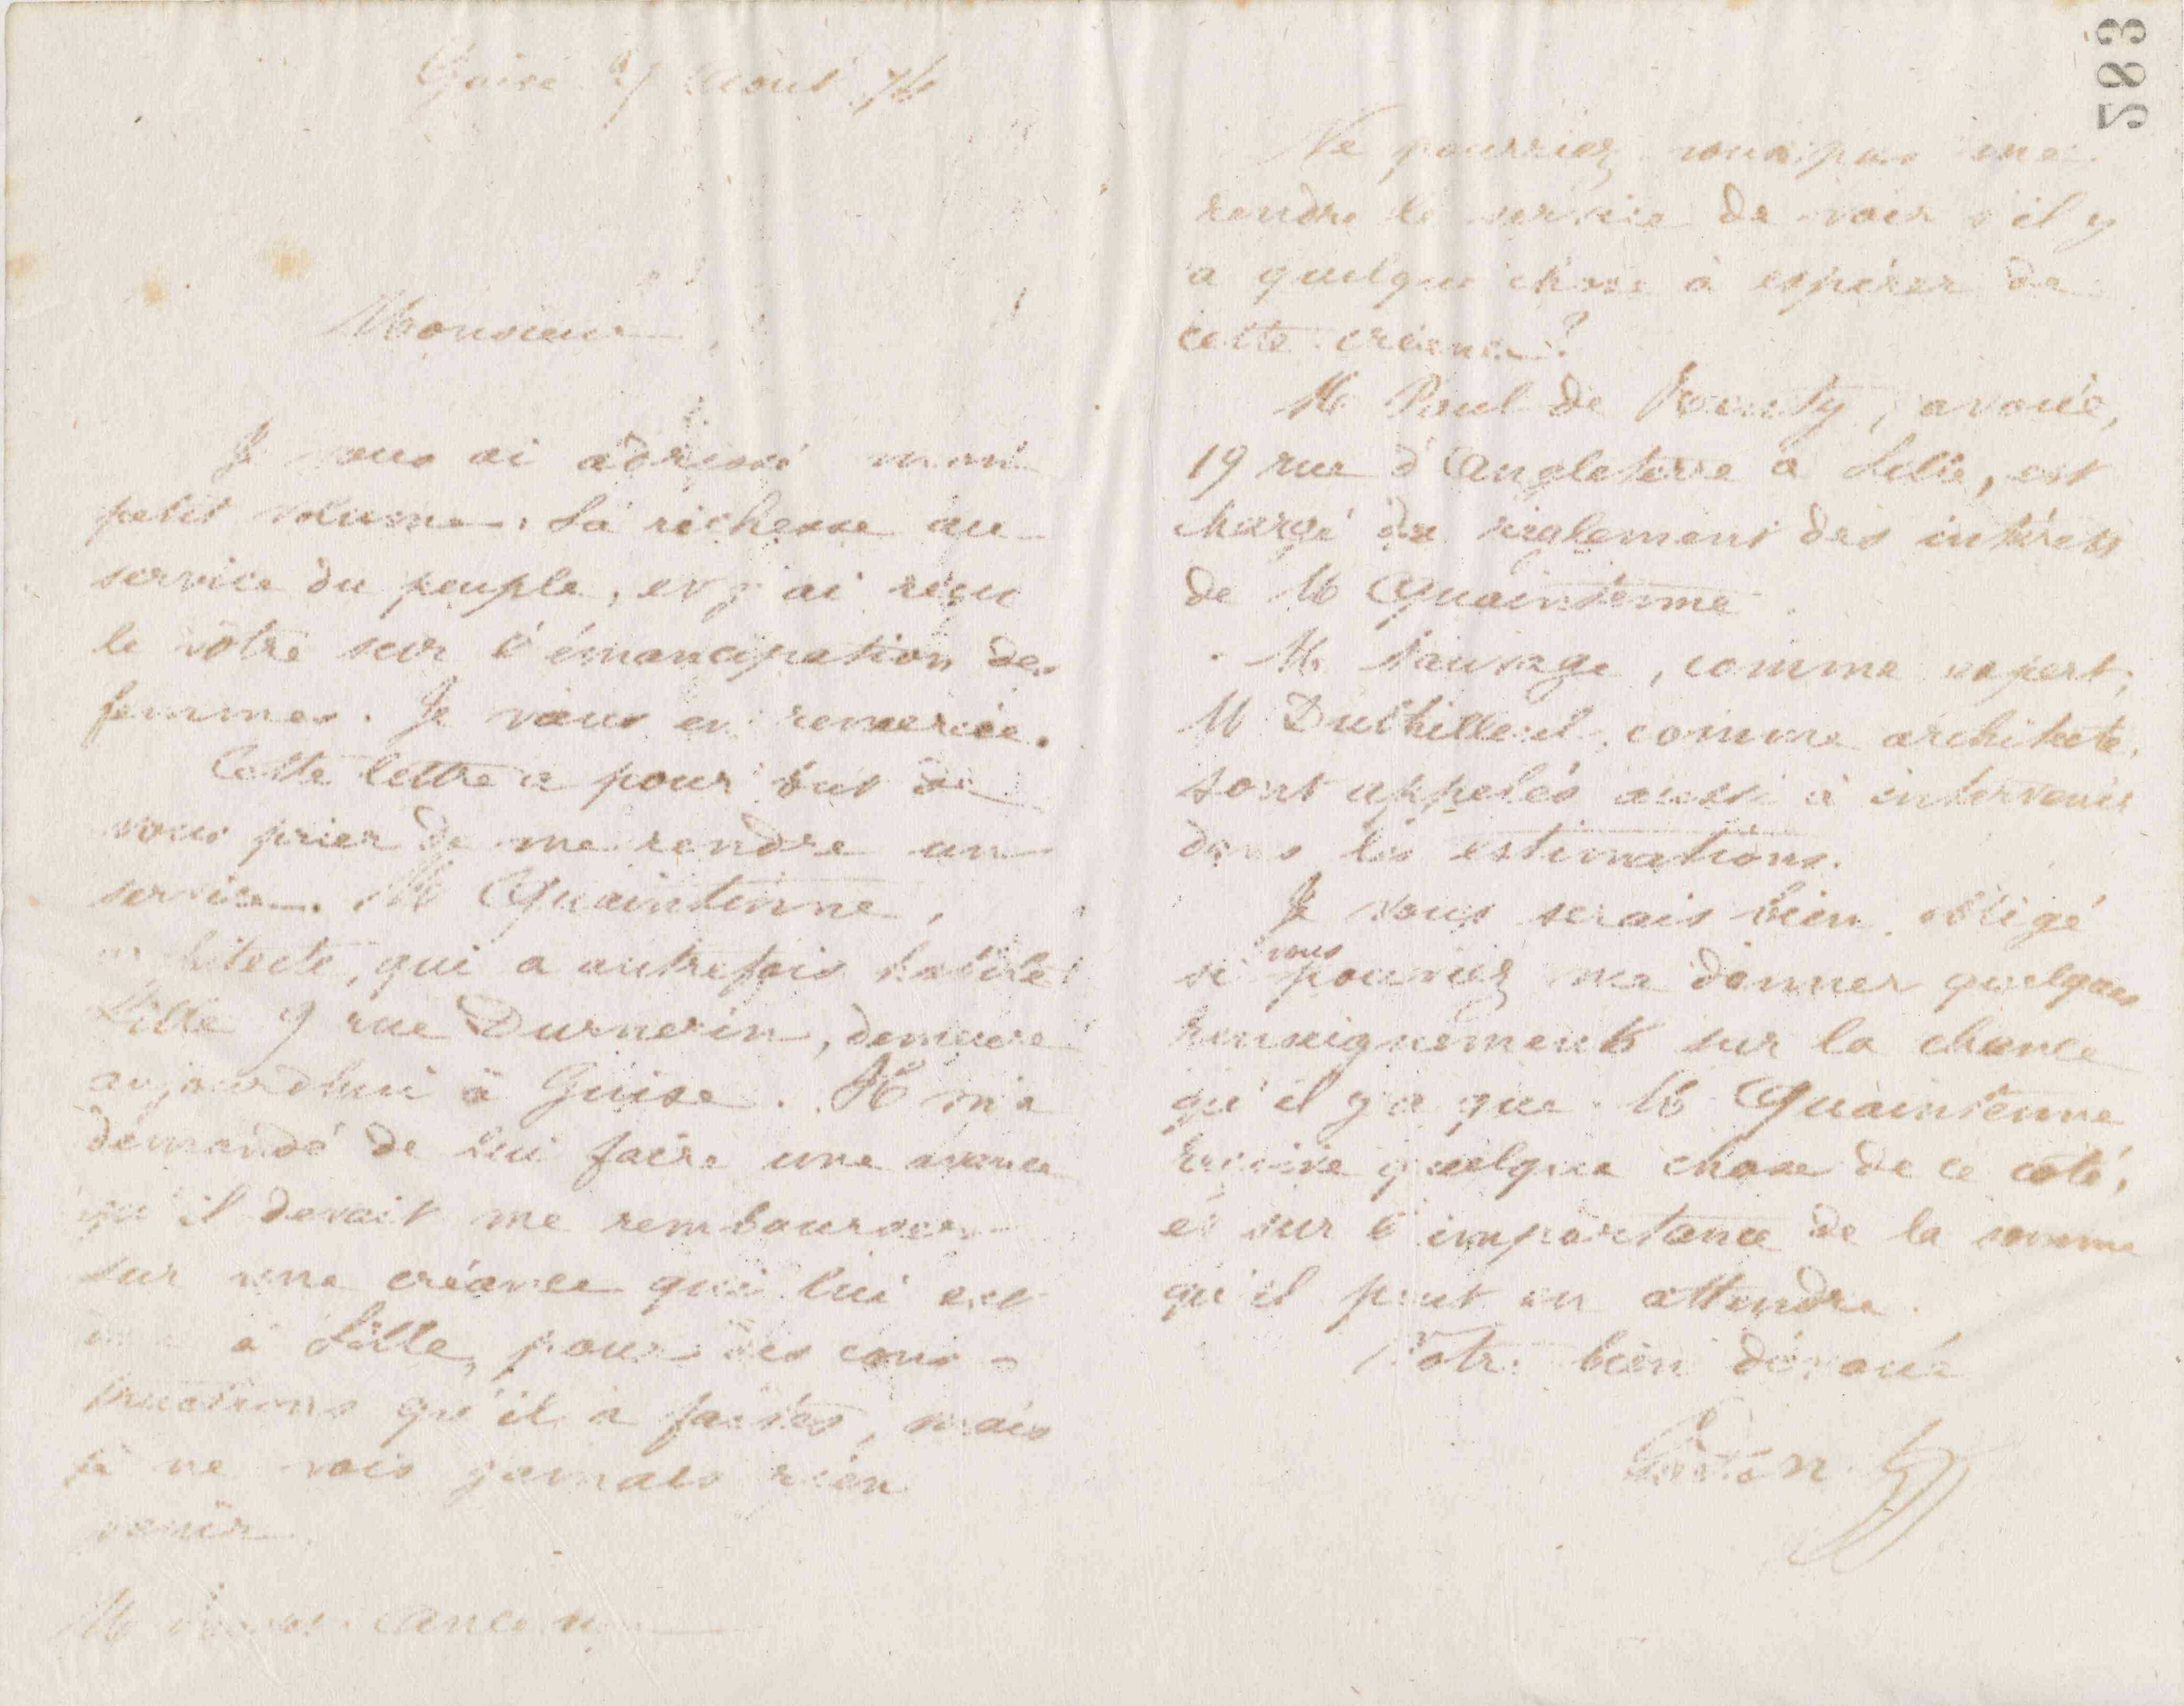 Guise 27 Août 74
Monsieur,
Je vous ai adressé mon
petit volume, La richesse au
service du peuple, et j'ai reçu
le vôtre sur l'émancipation des
femmes. Je vous en remercie.
Cette lettre a pour but de
vous prier de me rendre un
service. M Quaintenne,
architecte, qui a autrefois habité
Lille 9 rue Durnerin, demeure
aujourdhui à Guise. Il m'a
demandé de lui faire une avance
qu'il devait me rembourser
sur une créance qui lui est
due à Lille, pour des cons-
tructions qu'il a faites, mais
je ne vois jamais rien
venir.
M
Ne pourriez vous pas me
rendre le service de voir s'il y
a quelque chose à espérer de
cette créance?
M Paul de , avoué,
19 rue d'Angleterre à Lille, est
chargé du règlement des intérêts
de M Quaintenne.
M. Sauvage, comme expert,
M Duthilleul, comme architecte,
sont appelés aussi à intervenir
dans les estimations.
Je vous serais bien obligé
si vous pouviez me donner quelques
renseignements sur la chance
qu'il y a que M Quaintenne
reçoive quelque chose de ce côté,
et sur l'importance de la somme
qu'il peut en attendre.
Votre bien dévoué
Godin
283